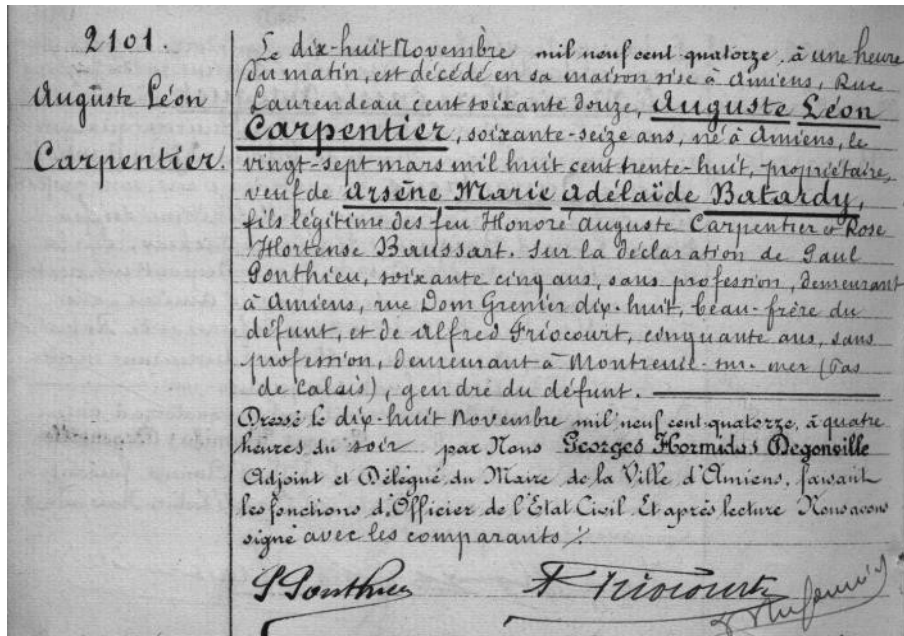 2101.
Auguste Léon
Carpentier.
Le dix-huit Novembre mil neuf cent quatorze, à une heure
du matin, est décédé en sa maison sise à Amiens, Rue
Laurendeau cent soixante douze, Auguste Léon
Carpentier, soixante-seize ans, né à Amiens, le
vingt-sept mars mil huit cent trente-huit, propriétaire,
veuf de Arsène Marie Adélaïde Batardy,
fils légitime des feu Honoré Auguste Carpentier & Rose
Hortense Baussart. Sur la déclaration de Paul
Ponthieu, soixante cinq ans, sans profession, demeurant
à Amiens, rue Dom Grenier dix-huit, beau-frère du
défunt, et de Alfred Friocourt, cinquante ans, sans
profession, demeurant à Montreuil-sur-mer (Pas
de Calais), gendre du défunt.
Dressé le dix-huit Novembre mil neuf cent quatorze, à quatre
heures du soir par Nous Georges Hormidas Degonville
Adjoint et Délégué du Maire de la Ville d'Amiens, faisant
les fonctions d'Officier de l'Etat Civil. Et après lecture Nous avons
signé avec les comparants ./.
P Ponthieu A Friocourt